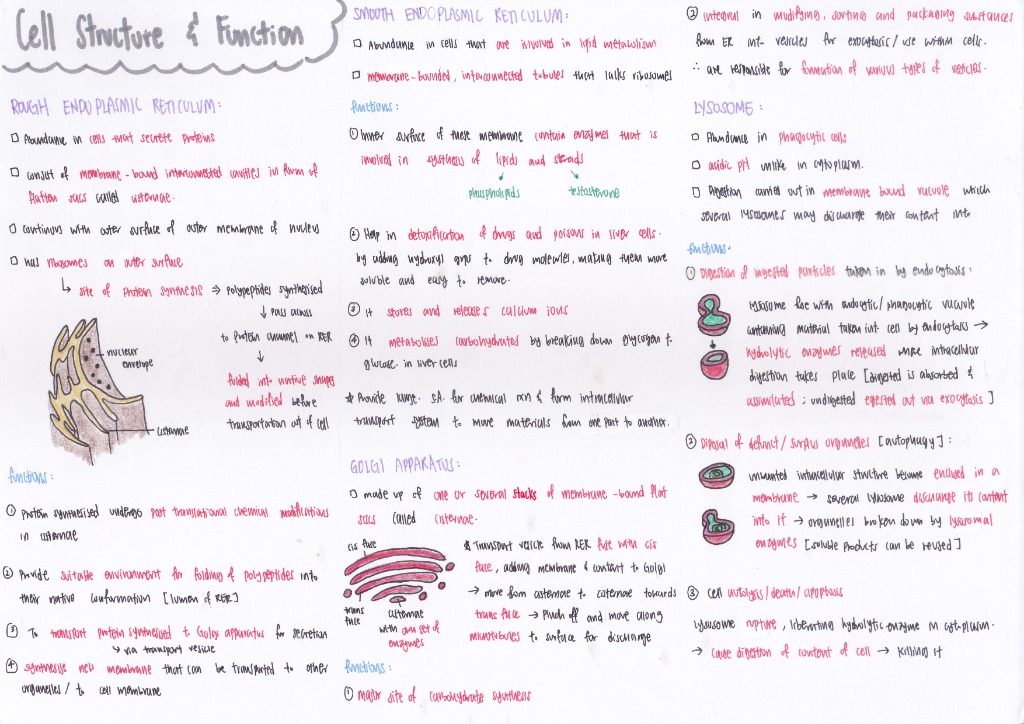 Cell Structure & Function
ROUGH ENDOPLASMIC RETICULUM:
□ Abundance in cells that secrete proteins
□ consist of membrane-bound interconnected cavities in form of
flatten sacs called cisternae.
□ continous with outer surface of outer membrane of nucleus
□ has ribosomes on outer surface
↳ site of protein synthesis → polypeptides synthesised
↓ pass across
to protein channel on RER
↓
folded into native shapes
and modified before
transportation out of cell
nuclear
envelope
cisternae
functions:
① Protein synthesised undergo post translational chemical modifications
in cisternae
② Provide suitable environment for folding of polypeptides into
their native conformation [lumen of RER]
③ To transport protein synthesised to Golgi apparatus for secretion
↳ via transport vesicle
④ synthesise new membrane that can be transported to other
organelles / to cell membrane
SMOOTH ENDOPLASMIC RETICULUM:
□ Abundance in cells that are involved in lipid metabolism
□ membrane-bounded, interconnected tubules that lacks ribosomes
functions:
① Inner surface of these membrane contain enzymes that is
involved in synthesis of lipids and steroids
phospholipids testosterone
② Help in detoxification of drugs and poisons in liver cells.
by adding hydroxyl grps to drug molecules, making them more
soluble and easy to remove.
③ It stores and releases calcium ions
④ It metabolises carbohydrates by breaking down glycogen to
glucose in liver cells
* Provide large S.A. for chemical rxn & form intracellular
transport system to move materials from one part to another.
GOLGI APPARATUS:
□ made up of one or several stacks of membrane-bound flat
sacs called cisternae.
cis face
trans
face
cisternae
with own set of
enzymes
* Transport vesicle from RER fuse with cis
face, adding membrane & content to Golgi
→ move from cisternae to cisternae towards
trans face → Pinch off and move along
microtubules to surface for discharge
functions:
① major site of carbohydrate synthesis
② integral in modifying, sorting and packaging substances
from ER into vesicles for exocytosis / use within cells.
∴ are responsible for formation of various types of vesicles.
LYSOSOME:
□ Abundance in phagocytic cells
□ acidic pH unlike in cytoplasm.
□ Digestion carried out in membrane bound vacuole which
several lysosomes may discharge their content into
functions:
① Digestion of ingested particles taken in by endocytosis:
lysosome fuse with endocytic / phagocytic vacuole
containing material taken into cell by endocytosis →
hydrolytic enzymes released where intracellular
digestion takes place [digested is absorbed &
assimilated; undigested egested out via exocytosis]
② Disposal of defunct / surplus organelles [autophagy]:
unwanted intracellular structure become enclosed in a
membrane → several lysosome discharge its content
into it → organelles broken down by lysosomal
enzymes [soluble products can be reused]
③ Cell autolysis / death / apoptosis
Lysosome rupture, liberating hydrolytic enzyme in cytoplasm.
→ cause digestion of content of cell → killing it